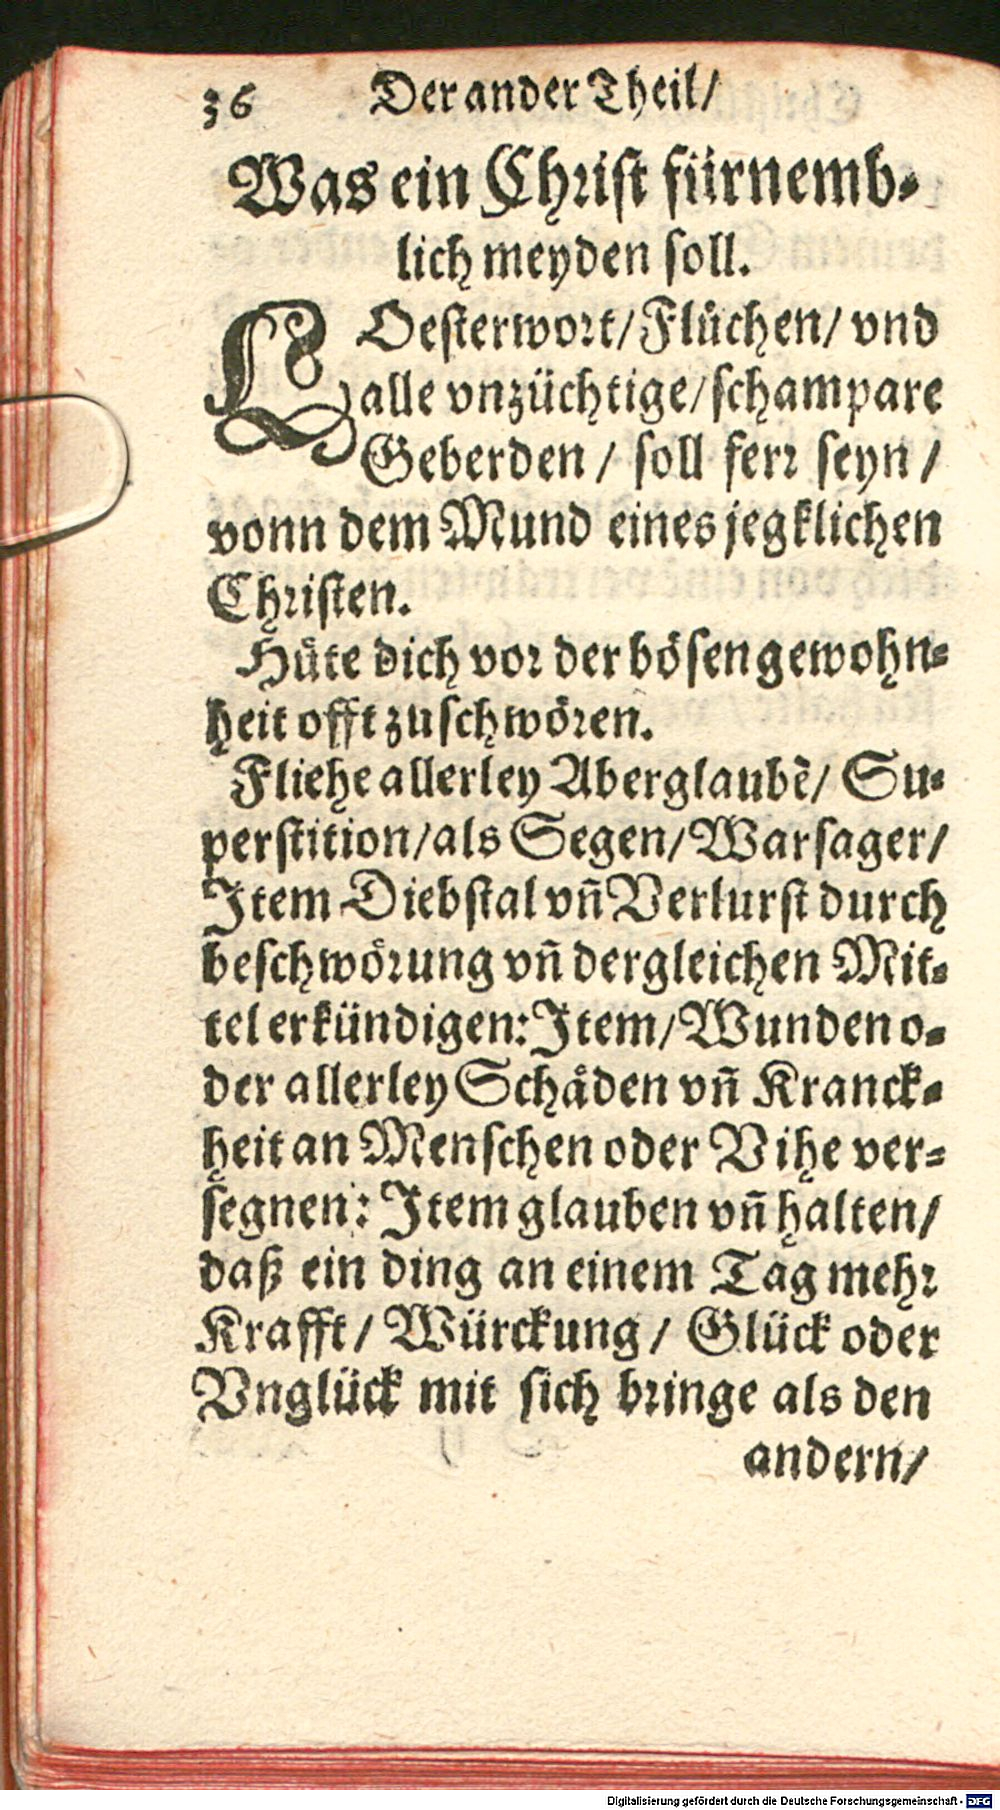 36 Der ander Theil/
Was ein Christ fürnemb-
lich meyden soll.
LOesterwort/ Flüchen/ vnd
alle vnzüchtige/ schampare
Geberden / soll ferr seyn /
vonn dem Mund eines jegklichen
Christen.
Hüte dich vor der bösen gewohn-
heit offt zu schwören.
Fliehe allerley Aberglaubẽ/ Su-
perstition/ als Segen/ Warsager/
Item Diebstal vñ Verlurst durch
beschwörung vñ dergleichen Mit-
tel erkündigen: Item/ Wunden o-
der allerley Schäden vñ Kranck-
heit an Menschen oder Vihe ver-
segnen: Item glauben vñ halten/
daß ein ding an einem Tag mehr
Krafft/ Würckung / Glück oder
Vnglück mit sich bringe als den
andern/
Digitalisierung gefördert durch die Deutsche Forschungsgemeinschaft - DFG